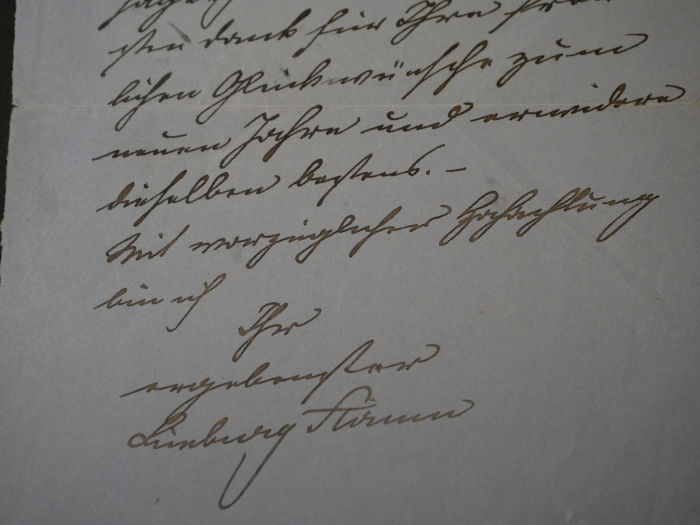 sten Dank für Ihre freu
lichen Glückwünsche zum
neuen Jahre und erwidere
dieselben bestens. –
Mit vorzüglicher Hochachtung
bin ich
Ihr
ergebenster